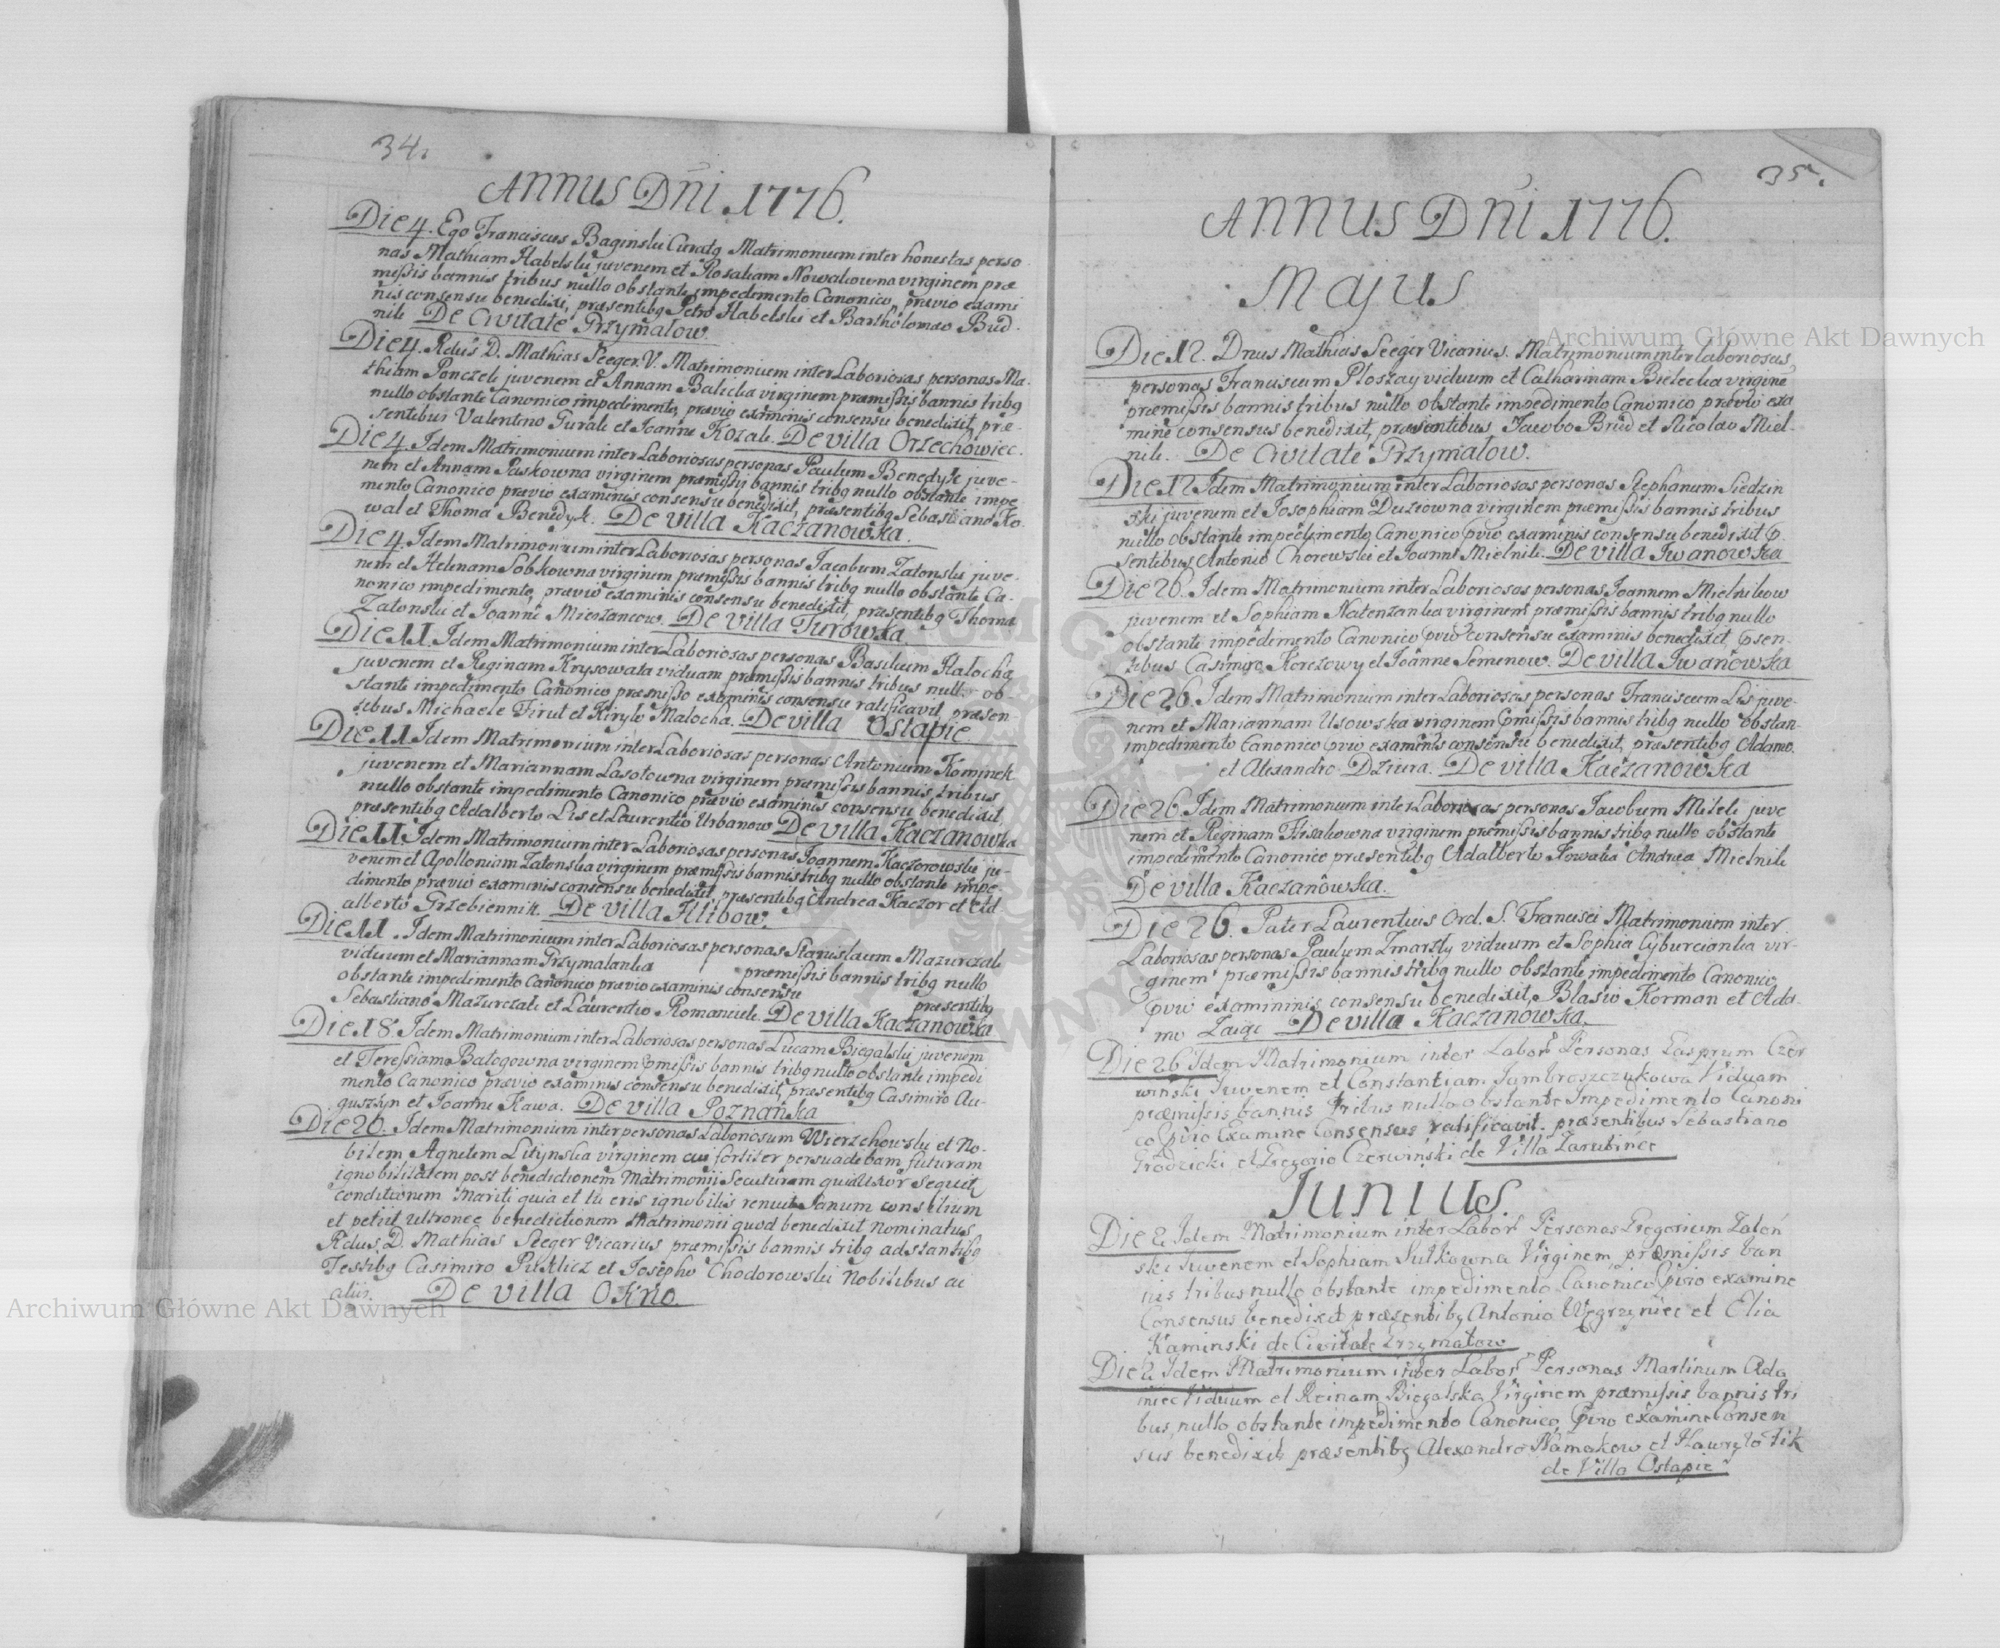 34.
ANNUS Dni 1776.
Die 4. Ego Franciscus Baginski Curatq Matrimonium inter honestas perso
nas Mathiam Habelski juvenem et Rosaliam Nowakowna virginem præ
missis bannis tribus nullo obstante impedimento Canonico, prævio exami
nis consensu benedixi, præsentibq Petro Habelski et Bartholomæo Bud.
nik De Civitate Przymałow.
Die 4. Rdus D. Mathias Seeger. V. Matrimonium inter Laboriosas personas Ma.
thiam Ponczek juvenem et Annam Balicka virginem præmissis bannis tribq
nullo obstante Canonico impedimento, prævio examinis consensu benedixit, præ-
sentibus Valentino Gural et Joanne Kozak. De villa Orzechowiec.
Die 4. Idem Matrimonium inter Laboriosas personas Paulum Benedyk juve-
nem et Annam Paskowna virginem præmissis bannis tribq nullo obstante impe-
mento Canonico prævio examinis consensu benedixit, præsentibq Sebastiano Ko.
wal et Thoma Benedyk. De villa Kaczanowka.
Die 4. Idem Matrimonium inter Laboriosas personas Jacobum Zatonski juve-
nem et Helenam Sobkowna virginem præmissis bannis tribq nullo obstante Ca-
nonico impedimento, prævio examinis consensu benedixit, præsentibq Thoma
Zatonski et Joanne Mieszancow. De villa Turowka.
Die 11. Idem Matrimonium inter Laboriosas personas Basilium Halocha
juvenem et Reginam Krysowata viduam præmissis bannis tribus nullo ob-
stante impedimento Canonico præmisso examinis consensu ratificavit, præsen
tibus Michaele Firut et Kiryło Malocha. De villa Ostapie.
Die 11. Idem Matrimonium inter Laboriosas personas Antonium Kominek
juvenem et Mariannam Lasotowna virginem præmissis bannis tribus
nullo obstante impedimento Canonico prævio examinis consensu benedixit,
præsentibq Adalberto Lis et Laurentio Urbanow De villa Kaczanowka
Die 11. Idem Matrimonium inter Laboriosas personas Joannem Kaczorowski ju-
venem et Apolloniam Zatonska virginem præmissis bannis tribq nullo obstante impe-
dimento prævio examinis consensu benedixit, præsentibq Andrea Kaczor et Ad
alberto Grzebiennik. De villa Hlibow.
Die 11. Idem Matrimonium inter Laboriosas personas Stanislaum Mazurczak
viduum et Mariannam Przymalanka præmissis bannis tribq nullo
obstante impedimento Canonico prævio examinis consensu præsentibq
Sebastiano Mazurczak et Laurentio Romaniuk. De villa Kaczanowka
Die 18. Idem Matrimonium inter Laboriosas personas Lucam Biegalski juvenem
et Teressiam Balogowna virginem præmissis bannis tribq nullo obstante impedi
mento Canonico prævio examinis consensu benedixit, præsentibq Casimiro Au-
guszyn et Joanne Kawa. De villa Poznanka
Die 20. Idem Matrimonium inter personas Laboriosum Wierzchowski et No-
bilem Agnetem Litynska virginem cui fortiter persuadebam futuram
ignobilitatem post benedictionem Matrimonii Secuturam quia Uxor sequit
conditionem Mariti quia et tu eris ignobilis renuit Sanum consilium
et petiit ultronee benedictionem Matrimonii quod benedixit nominatus
Rdus D. Mathias Seeger Vicarius præmissis bannis tribq adstantibq
Testibq Casimiro Puklicz et Josepho Chodorowski Nobilibus ac
aliis. De villa Okno.
35.
ANNUS Dni 1776.
Majus
Die 12. Dnus Mathias Seeger Vicarius. Matrimonium inter laboriosas
personas Franciscum Płoszay viduum et Catharinam Bielecka virgine
præmissis bannis tribus nullo obstante impedimento Canonico prævio exa
mine consensus benedixit, præsentibus Jacobo Brud et Nicolao Miel-
nik. De Civitate Przymałow.
Die 12 Idem Matrimonium inter Laboriosas personas Stephanum Siedzin
ski juvenem et Josephiam Duziowna virginem præmissis bannis tribus
nullo obstante impedimento Canonico pvio examinis consensu benedixit p.
sentibus Antonio Chorewski et Joanne Mielnik. De villa Iwanowka
Die 26. Idem Matrimonium inter Laboriosas personas Joannem Mielnikow
juvenem et Sophiam Natenzanka virginem præmissis bannis tribq nullo
obstante impedimento Canonico pvio consensu examinis benedixit, psen-
tibus Casimiro Korczowy et Joanne Semenow. De villa Iwanowka
Die 26. Idem Matrimonium inter Laboriosas personas Franciscum Lis juve-
nem et Mariannam Usowska virginem pmissis bannis tribq nullo obstan-
impedimento Canonico pvio examinis consensu benedixit, præsentibq Adamo
et Alexandro Dziura. De villa Kaczanowka
Die 26 Idem Matrimonium inter Laboriosas personas Jacobum Mitek juve
nem et Reginam Flisakowna virginem præmissis bannis tribq nullo obstante
impedimento Canonico præsentibq Adalberto Kowala Andrea Mielnik
De villa Kaczanowka.
Die 26. Pater Laurentius Ord. S. Francisci Matrimonium inter
Laboriosas personas Paulum Zmarzły viduum et Sophia Cyburcionka vir-
ginem præmissis bannis tribq nullo obstante impedimento Canonico,
pvio examininis consensu benedixit, Blasio Korman et Ada-
mo Zaige De villa Kaczanowka.
Die 26 Idem Matrimonium inter Labor: Personas Casprum Czer
winski Juvenem et Constantiam Jambroszczykowa Viduam
præmissis bannis tribus nullo obstante Impedimento Canoni
co pvio Examine Consensus ratificavit. præsentibus Sebastiano
Grodzicki et Gregorio Czerwinski de Villa Zarubince
Junius.
Die 2 Idem Matrimonium inter Labor: Personas Gregorium Zaton
ski Juvenem et Sophiam Sutkowna Virginem præmissis ban
nis tribus nullo obstante impedimento Canonico pvio examine
Consensus benedixit præsentibq Antonio Węgrzyniec et Elia
Kaminski de Civitate Grzymałow
Die 2 Idem Matrimonium inter Labor: Personas Martinum Ada
miec Viduum et Reinam Biegalska Virginem præmissis bannis tri
bus, nullo obstante impedimento Canonico, pvio examine Consen
sus benedixit præsentibq Alexandro Hamakow et Hawryło Tik
de Villa Ostapie
Archiwum Główne Akt Dawnych
Archiwum Główne Akt Dawnych